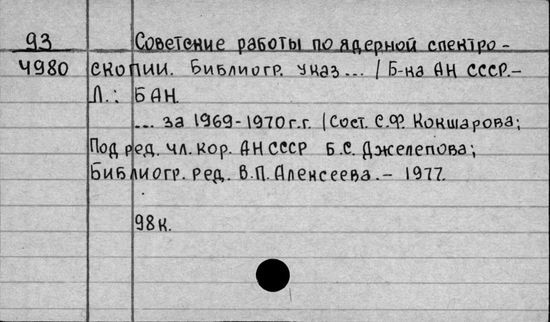 93 Советские работы по ядерной спектро-
4980 скопии. Библиогр. указ... / Б-ка АН СССР.-
Л.: БАН.
... за 1969-1970г.г. / Сост. С.Ф. Кокшарова;
Под ред. чл. кор. АН СССР Б.С. Джелепова;
Библиогр. ред. В.П. Алексеева. - 1977.
98к.